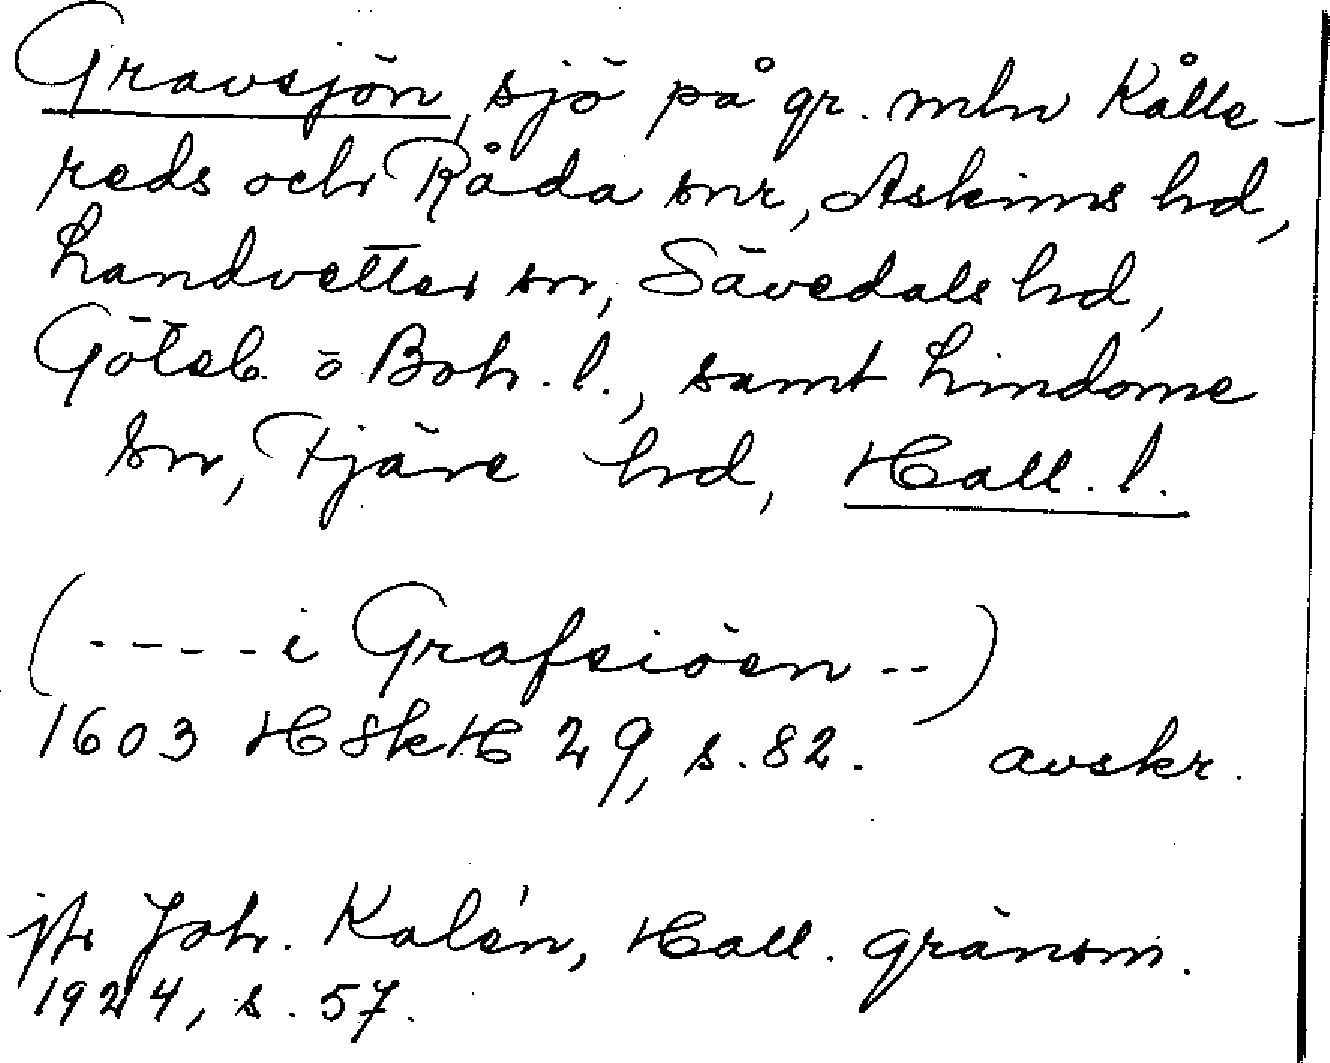 Gravsjön, sjö på gr. mln Kålle-
reds och Råda snr, Askims hd,
Landvetter sn, Sävedals hd,
Göteb. o Boh. l., samt Lindome
sn, Fjäre hd, Hall. l.
(- - - - i Grafsiöen - -)
1603 HSkH 29, s. 82. avskr.
jfr Joh. Kalén, Hall. gränsm.
1924, s. 57.